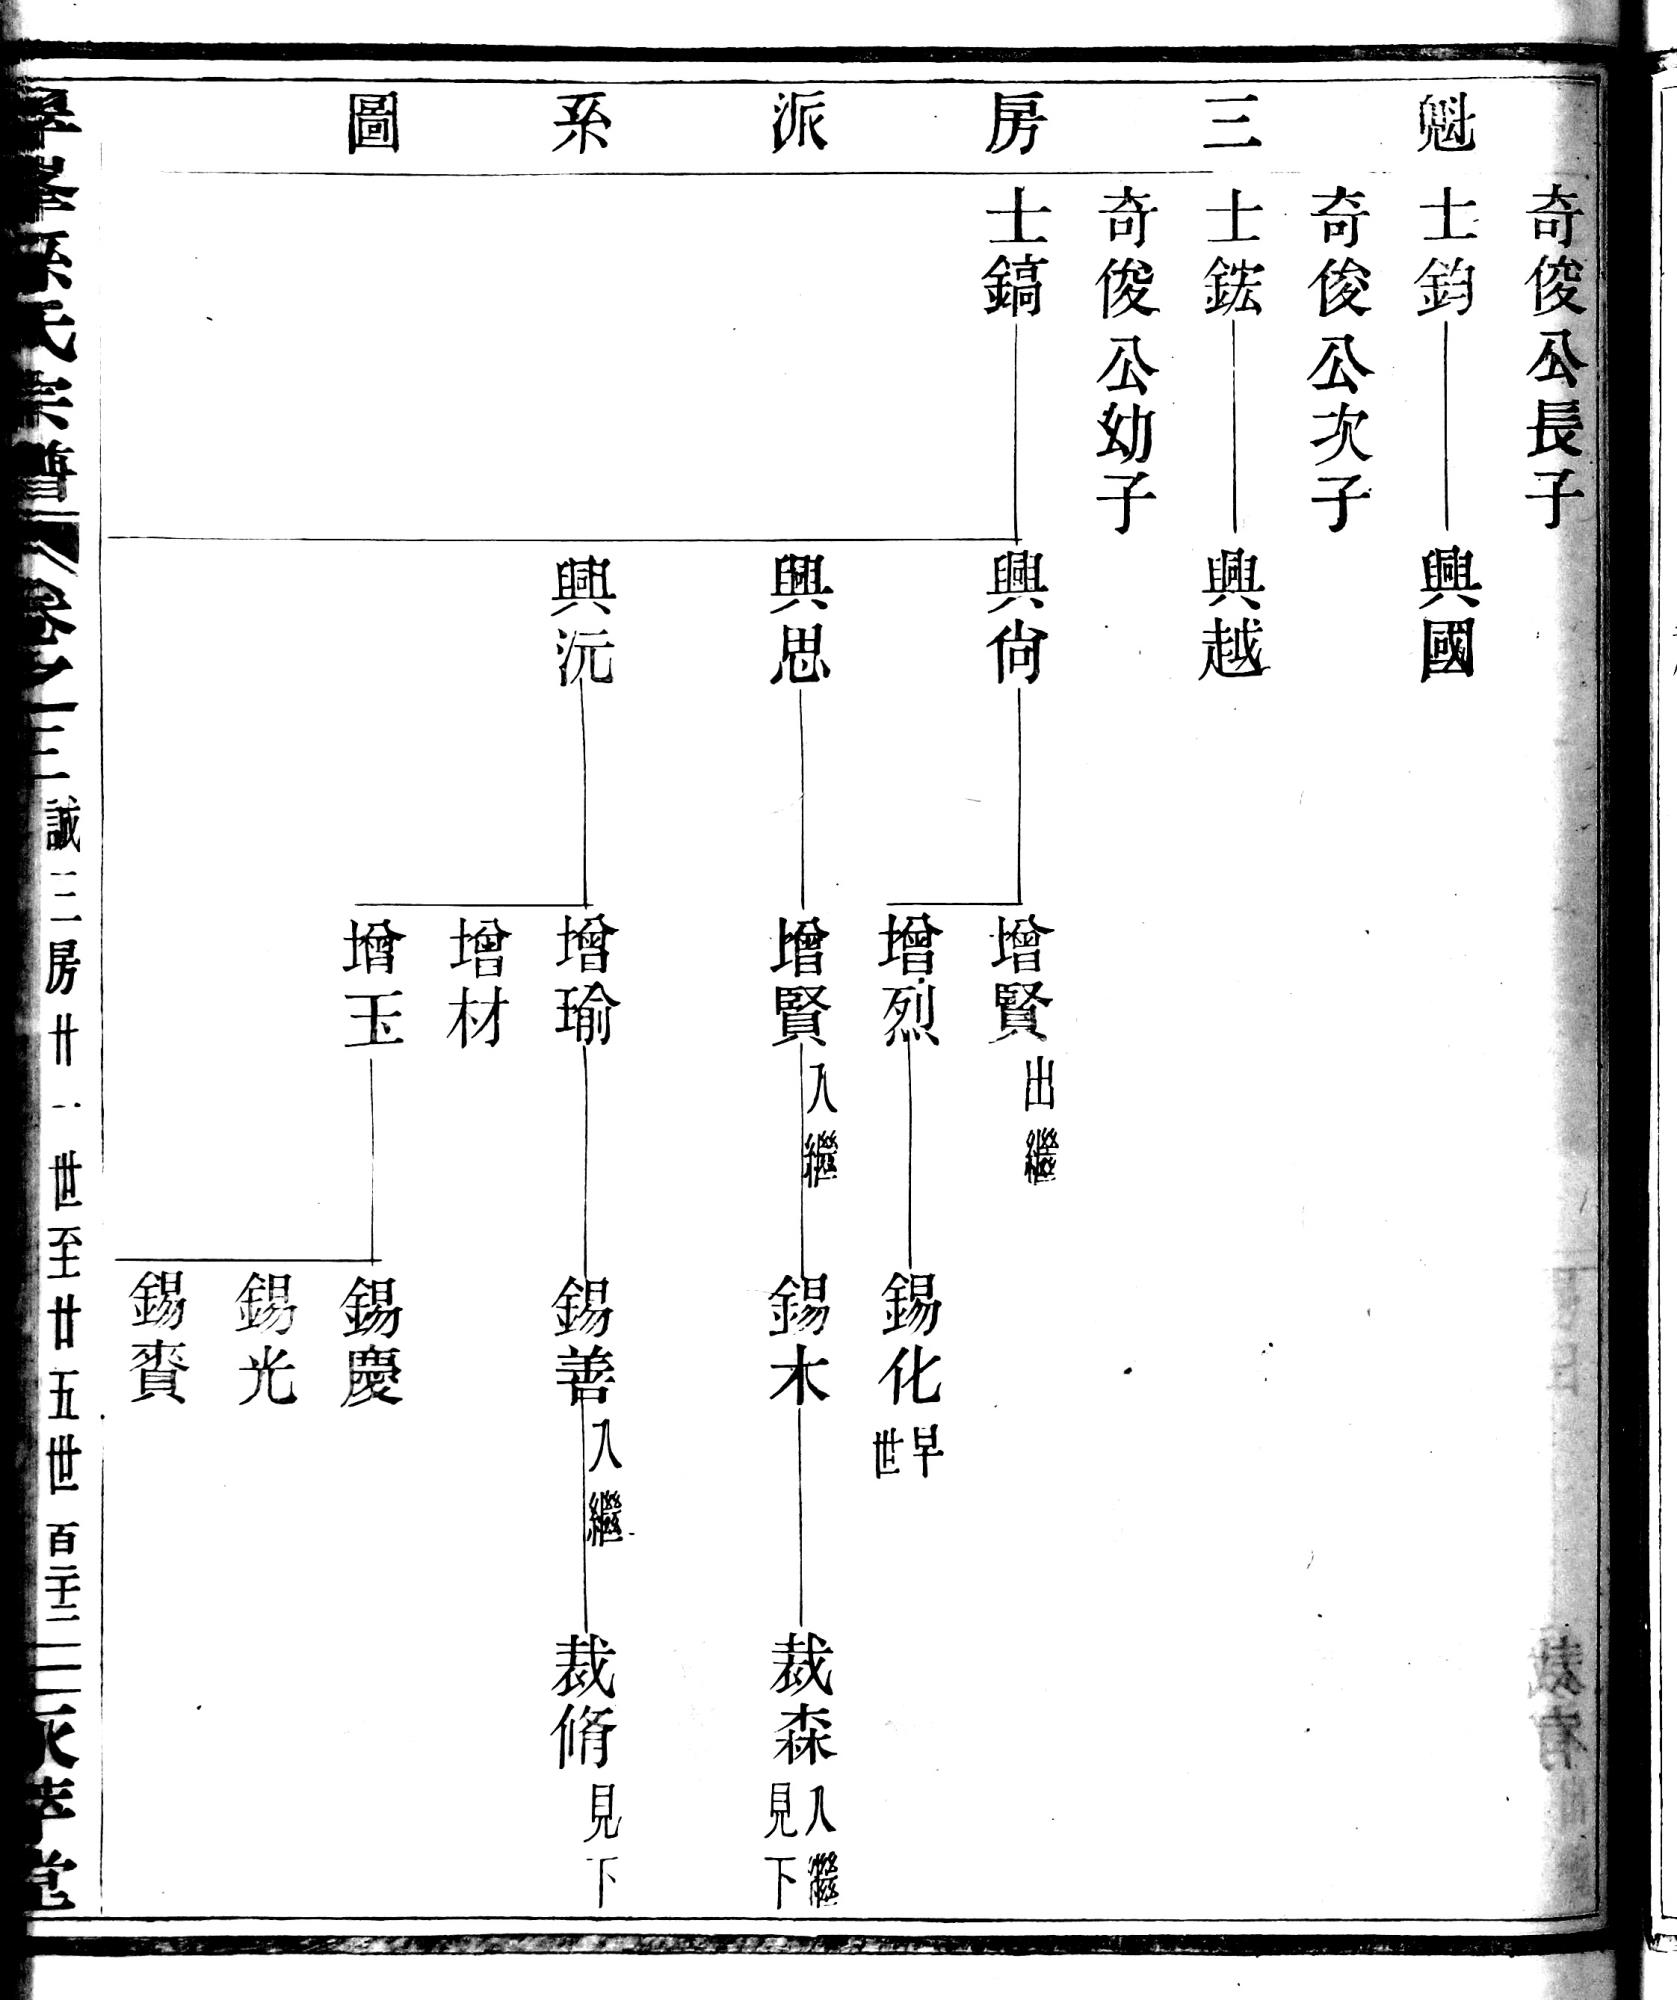 魁三房派系圖
奇俊公長子
士鈞
興國
奇俊公次子
士鋐
興越
奇俊公幼子
士鎬
興尙
增賢出繼
增烈
錫化早世
興思
增賢入繼
錫木
裁森入繼見下
興沅
增瑜
錫善入繼
裁脩見下
增材
增玉
錫慶
錫光
錫賚
孫氏宗譜 卷之 三 誠三房廿一世至廿五世 百二十二 堂